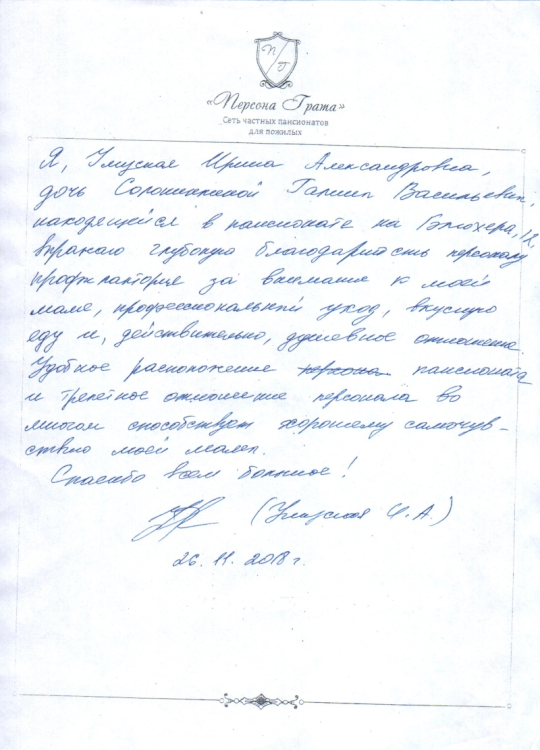 П/Г
«Персона Грата»
Сеть частных пансионатов
для пожилых
Я, Ирина Александровна,
дочь Галины Васильевны,
находящейся в пансионате на Блюхера, 12,
выражаю глубокую благодарность персоналу
профилактория за внимание к моей
маме, профессиональный уход, вкусную
еду и, действительно, душевное отношение.
Удобное расположение пансионата
и трепетное отношение персонала во
многом способствует хорошему самочув-
ствию моей мамы.
Спасибо всем большое!
И. А.)
26. 11. 2018 г.